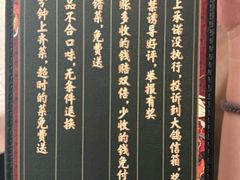 上承诺没执行，投诉到大鸽信箱，奖
禁诱导好评，举报有奖
账多收的钱赔双倍，少收的钱免付
错菜，免费送
品不合口味，无条件退换
分钟上齐菜，超时的菜免费送